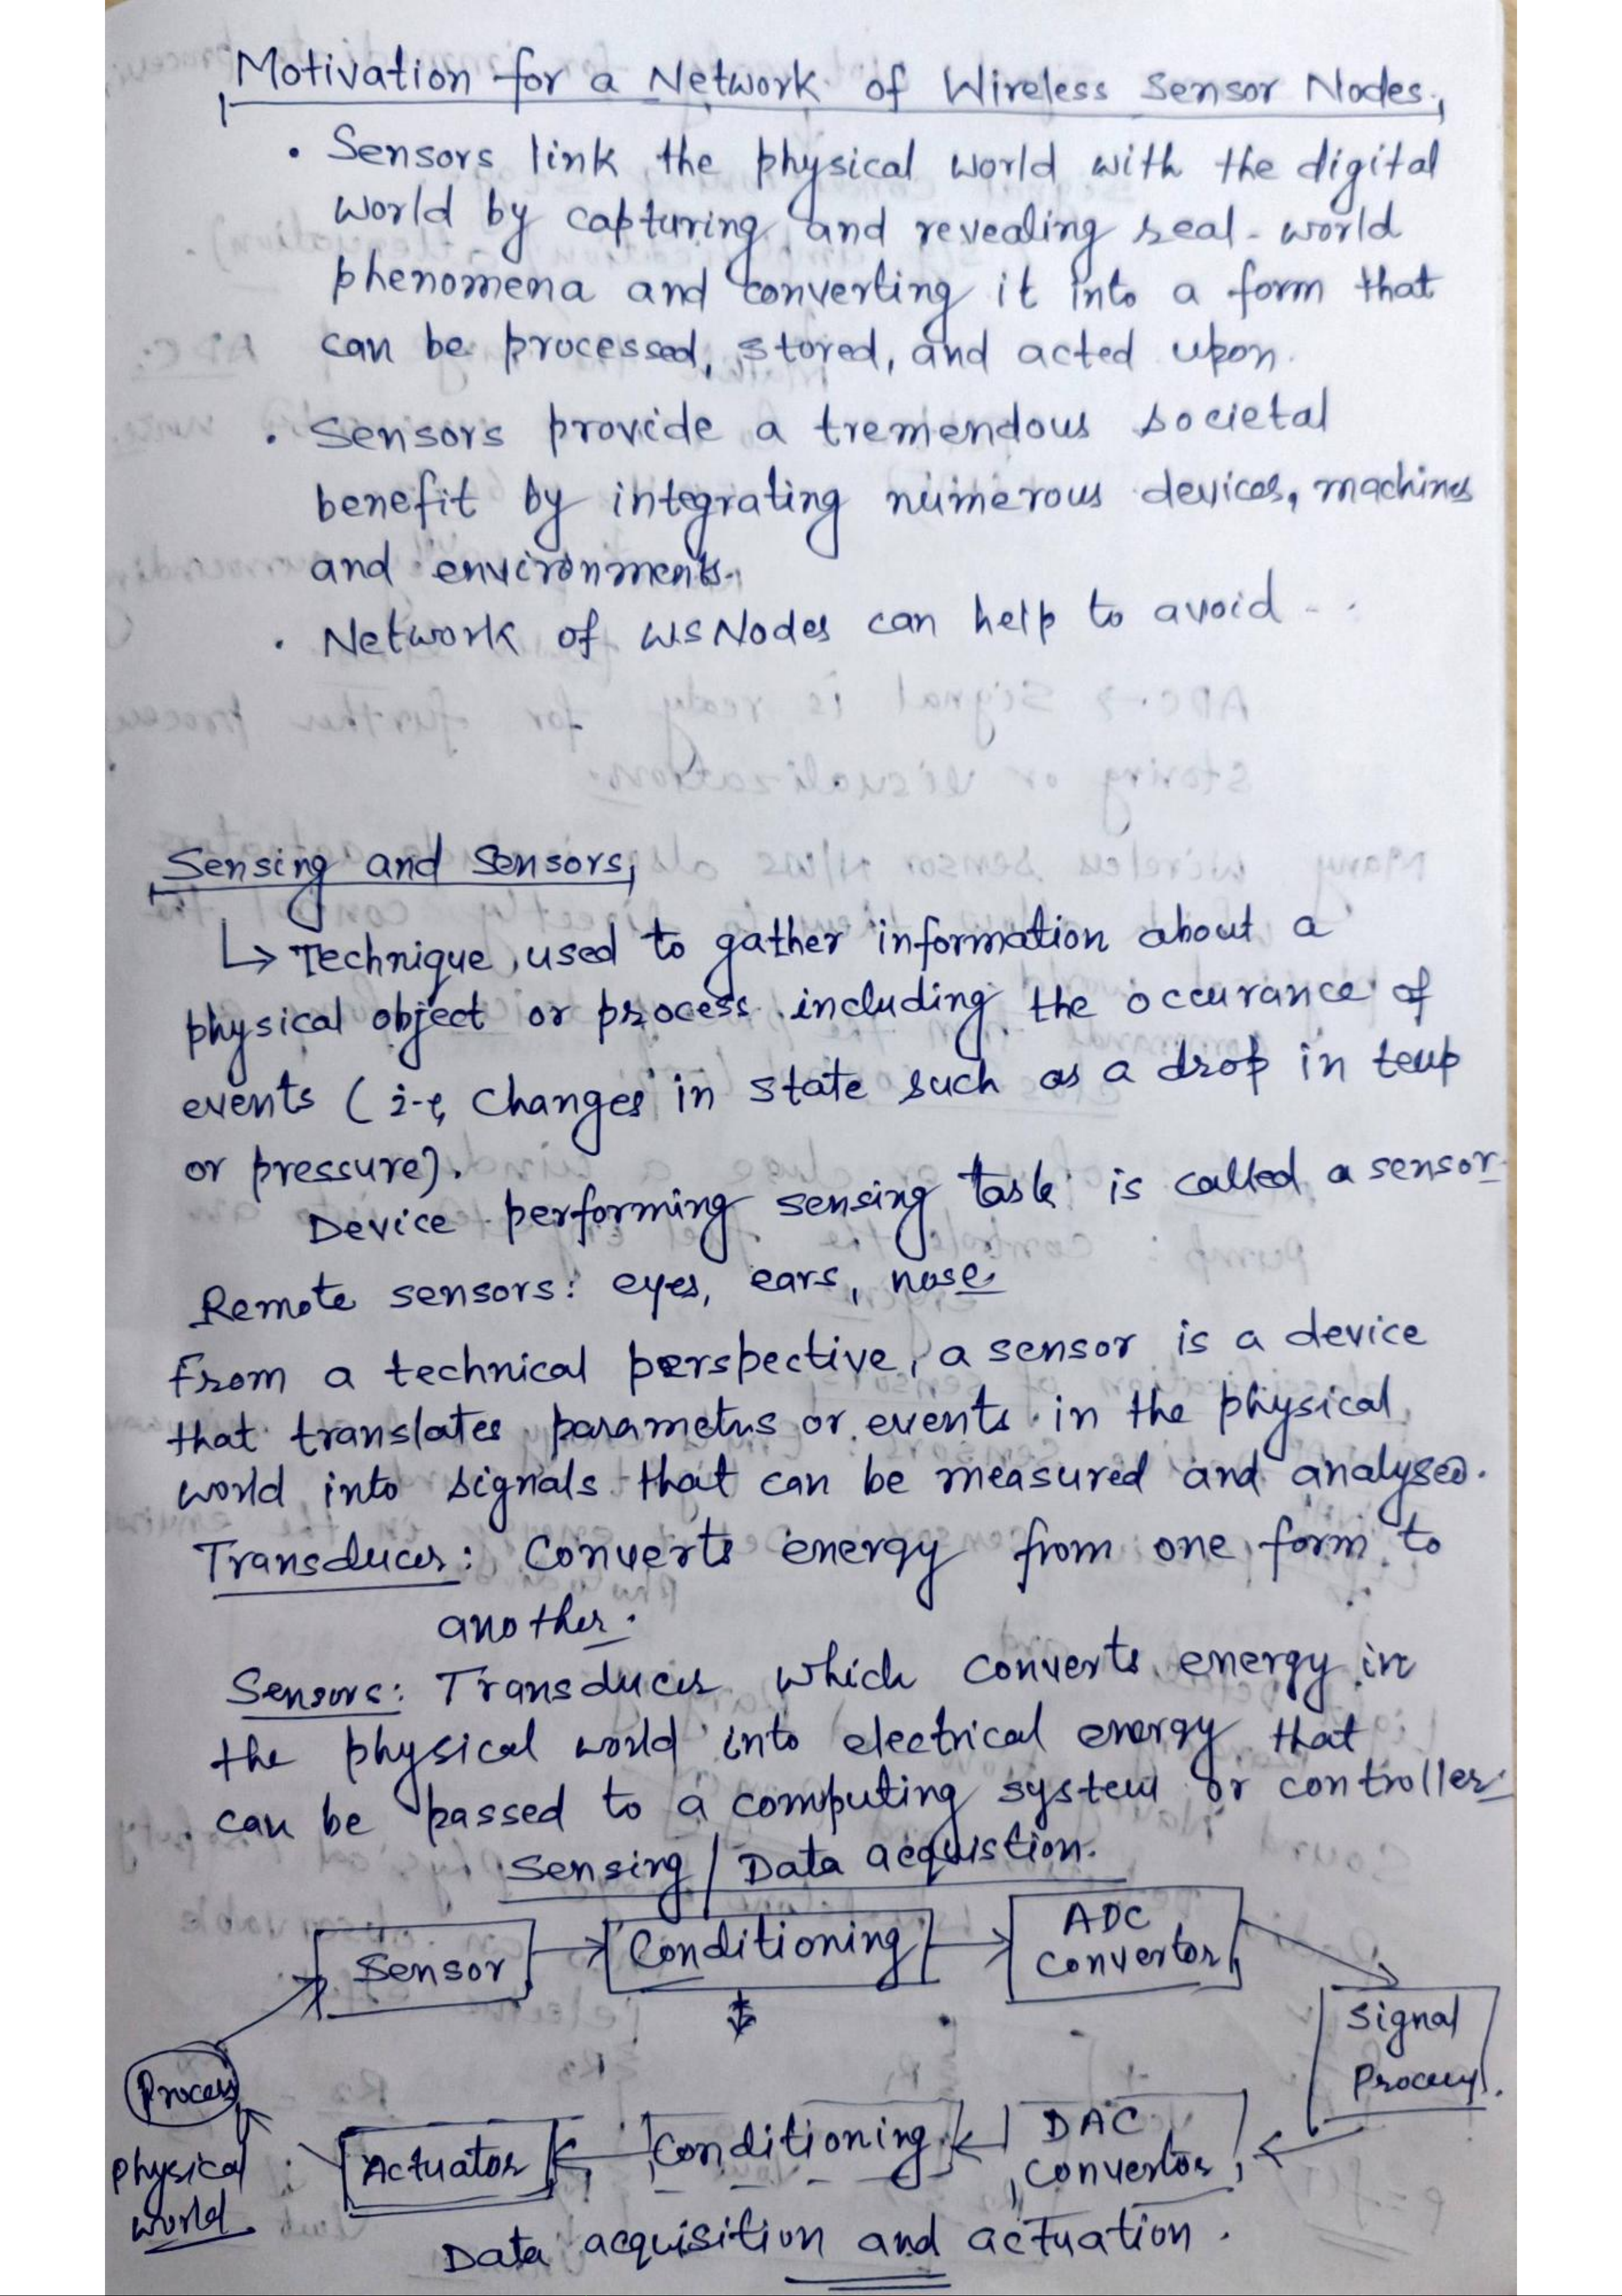 Motivation for a Network of Wireless Sensor Nodes,
• Sensors link the physical world with the digital
world by capturing and revealing real-world
phenomena and converting it into a form that
can be processed, stored, and acted upon.
• Sensors provide a tremendous societal
benefit by integrating numerous devices, machines
and environments.
• Network of WSNodes can help to avoid - . .
Sensing and Sensors,
↳ Technique used to gather information about a
physical object or process including the occurance of
events (i-e, changes in state such as a drop in temp
or pressure).
Device performing sensing task is called a sensor
Remote sensors: eyes, ears, nose
From a technical perspective, a sensor is a device
that translates parameters or events in the physical
world into signals that can be measured and analysed.
Transducer: Converts energy from one form to
another.
Sensors: Transducer which converts energy in
the physical world into electrical energy that
can be passed to a computing system or controller
Sensing / Data acquistion.
Sensor
Conditioning
ADC
Convertor
Signal
Process.
Process
physical
world
Actuator
Conditioning
DAC
Convertor
Data acquisition and actuation.